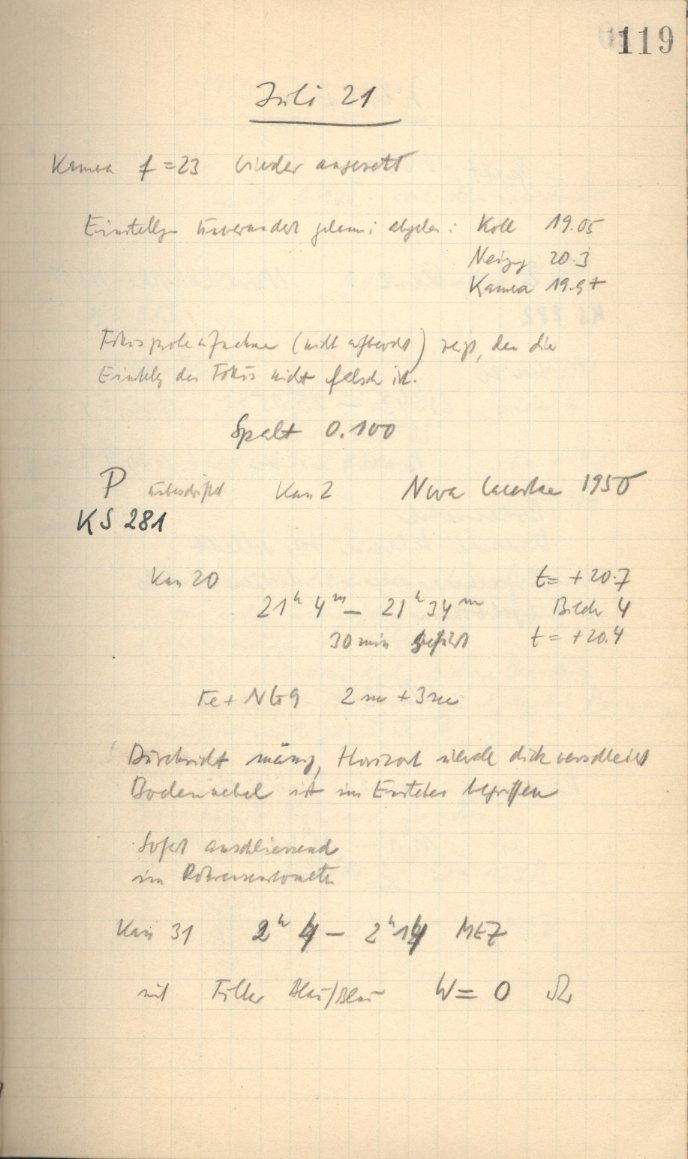 119
Juli 21
Kamera f = 23 wieder angesetzt
Einstellg unverändert abgeles.: Koll 19.05
Neigg 20.3
Kamera 19.9+
Fokusprobeaufnahme (nicht aufbewahrt) zeigt, dass die
Einstellg des Fokus nicht falsch ist.
Spalt 0.100
P Kas 2 Nova Lacertae 1950
KS 281
Kas 20 t = +20.7
21h 4m – 21h 34m Bildr 4
30 min geführt t = +20.4
Fe + NG9 2 sec + 3 sec
Durchsicht mässig, Horizont dick verschleiert
Bodennebel ist im Entstehen begriffen
Sofort anschliessend
im Röhrensensitometer
Kas 31 2h 4 – 2h 14 MEZ
mit Filter Blau/Blau W = 0 Ω